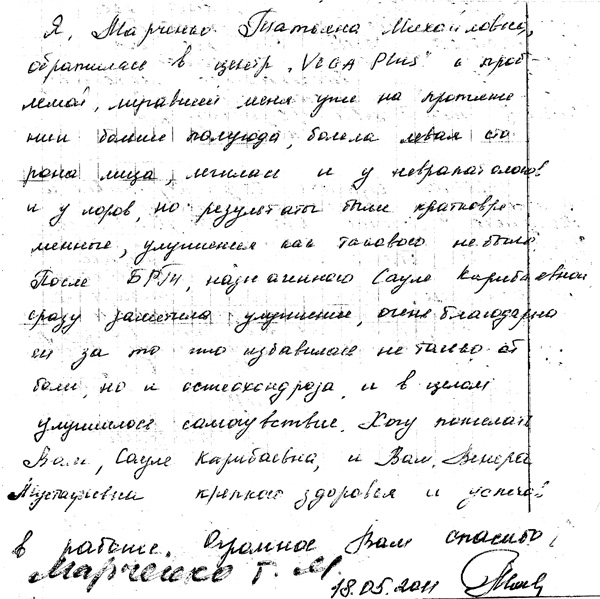 Я, Марченко Татьяна Михайловна,
обратилась в центр „VEGA Plus" с проб-
лемой, мучавшей меня уже на протяже
нии более полугода, болела левая сто
рона лица, лечилась и у невропатологов
и у лоров, но результаты были кратковре-
менные, улучшения как такового не было.
После БРТ, назначенного Сауле Карибаевной
сразу заметила улучшение, очень благодарна
ей за то что избавилась не только от
боли, но и остеохондроза, и в целом
улучшилось самочувствие. Хочу пожелать
Вам, Сауле Карибаевна, и Вам, Венера
Мустафаевна крепкого здоровья и успехов
в работе. Огромное Вам спасибо,
Марченко Т. М.
18.05.2011